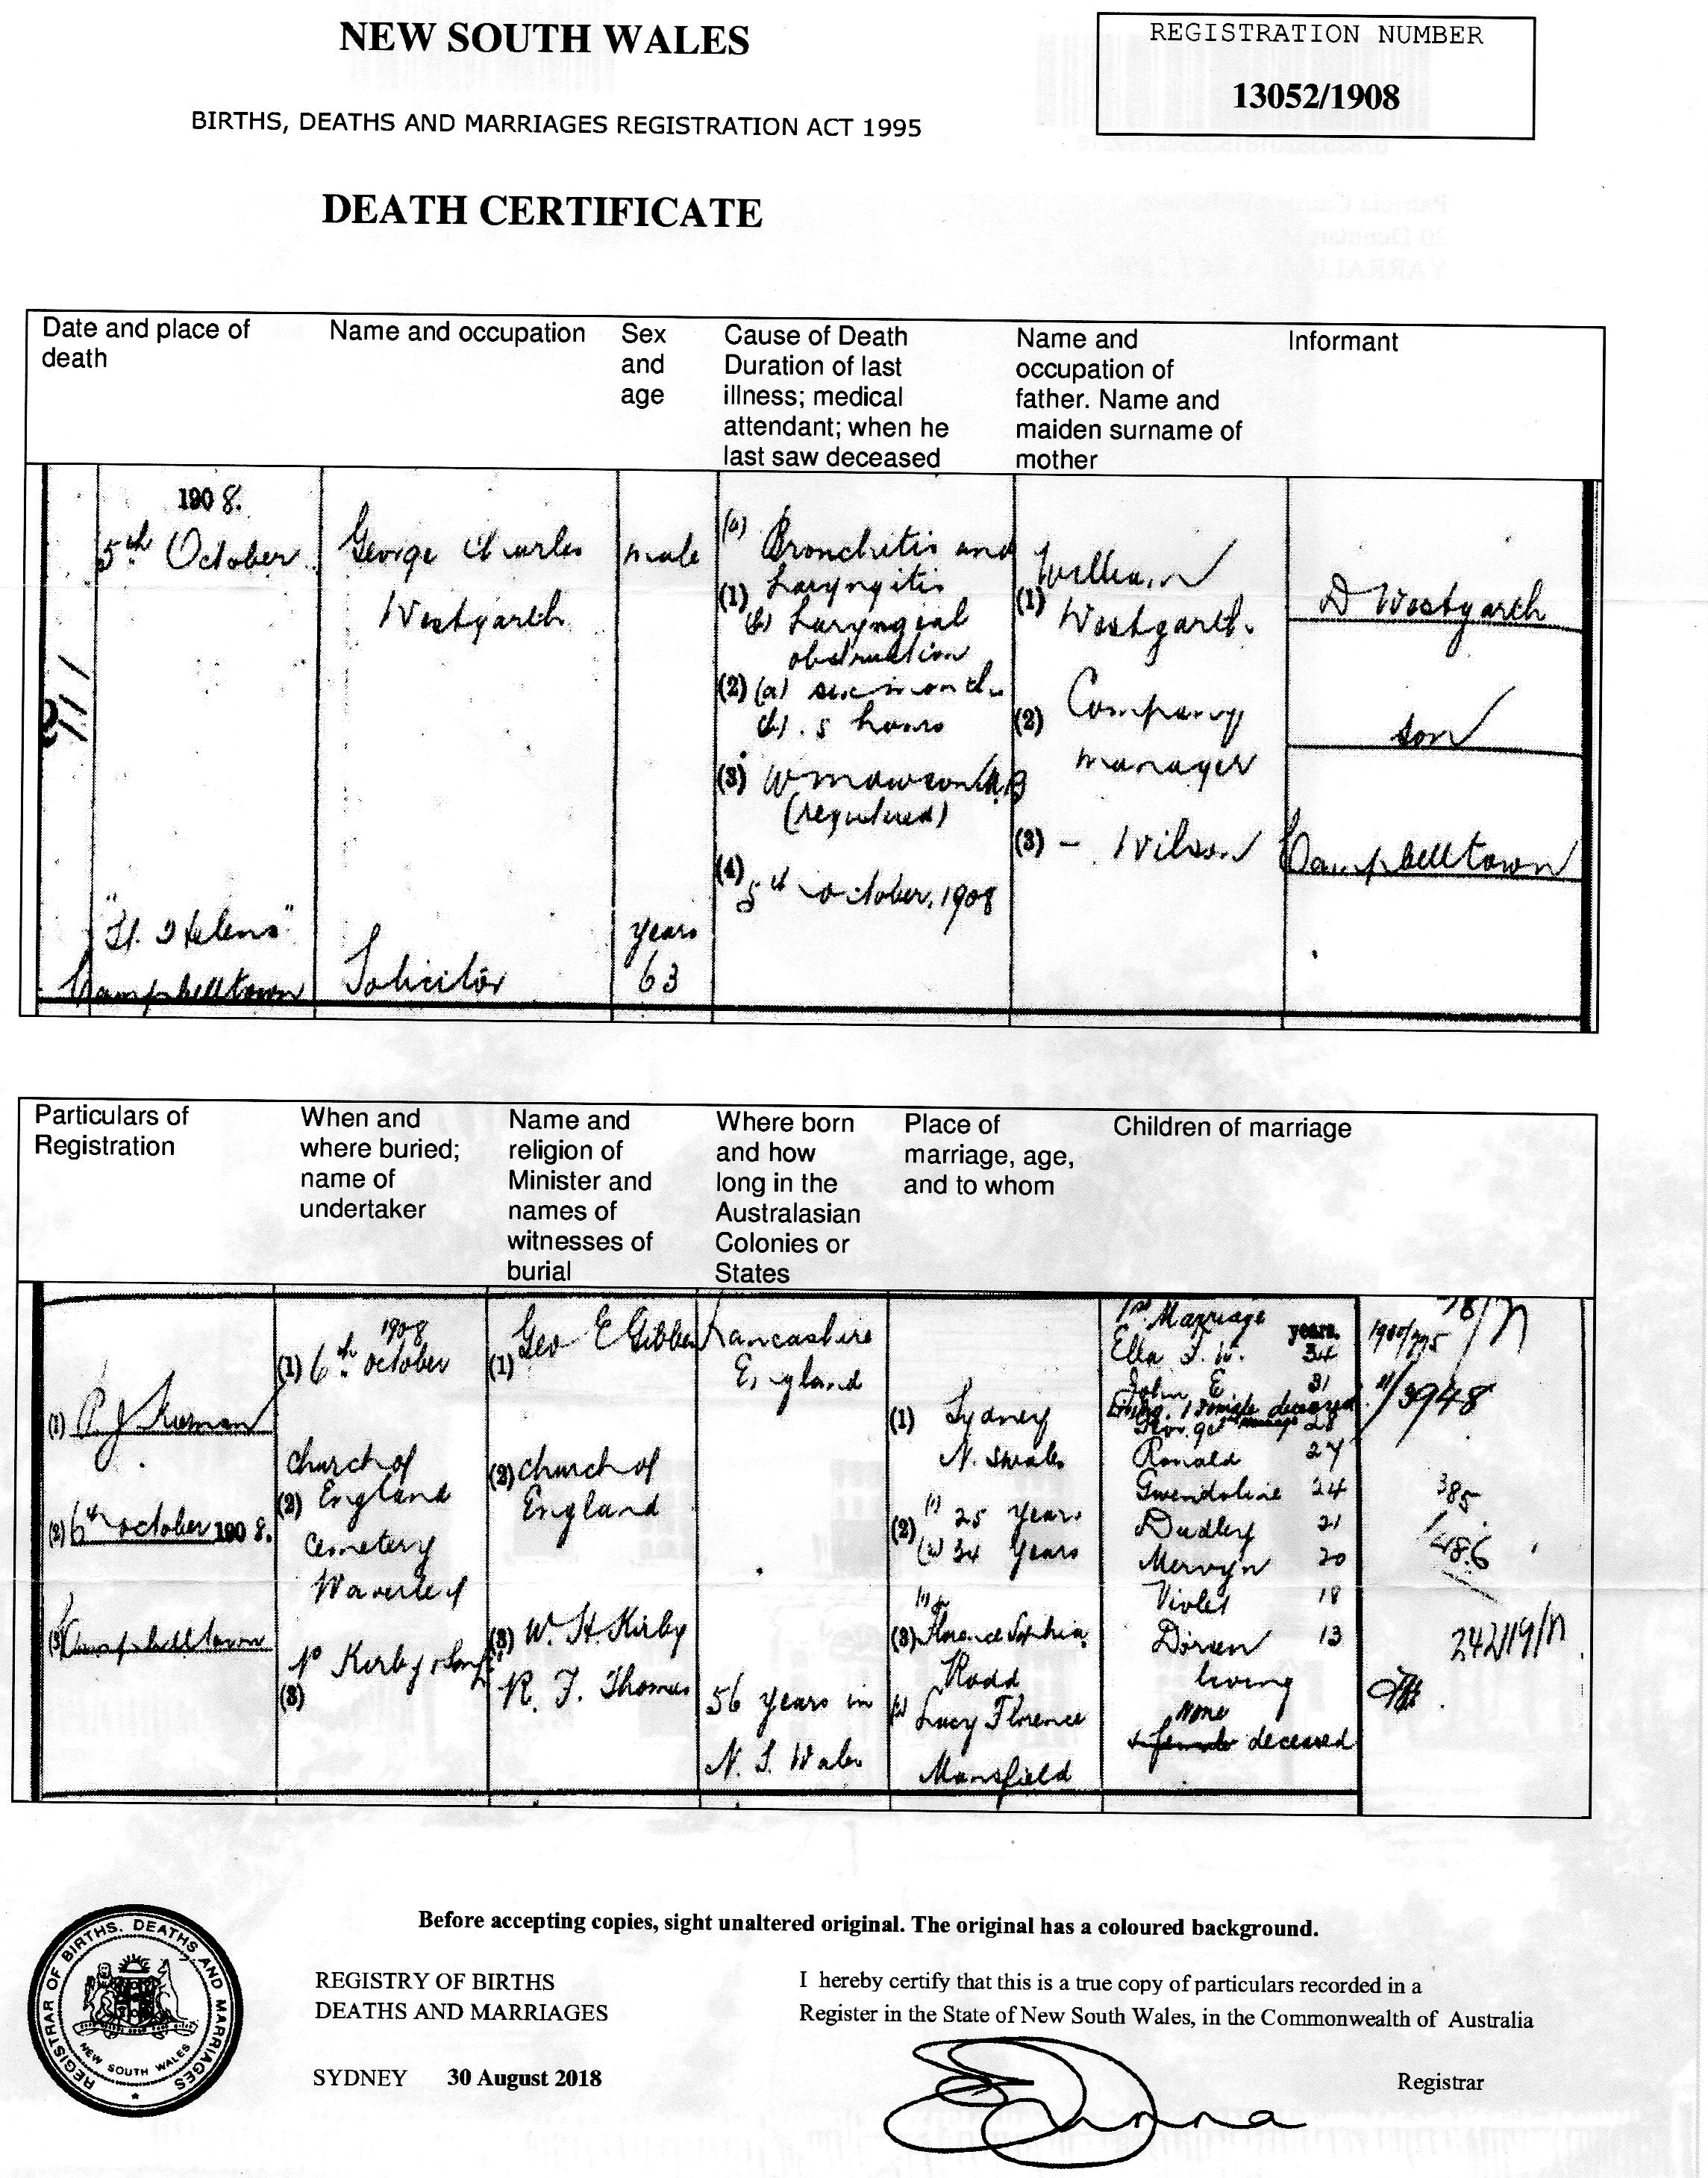 NEW SOUTH WALES
REGISTRATION NUMBER
13052/1908
BIRTHS, DEATHS AND MARRIAGES REGISTRATION ACT 1995
DEATH CERTIFICATE
Date and place of
death
Name and occupation
Sex
and
age
Cause of Death
Duration of last
illness; medical
attendant; when he
last saw deceased
Name and
occupation of
father. Name and
maiden surname of
mother
Informant
1908.
5th October
"St. Helens"
Campbelltown
George Charles
Westgarth
Solicitor
male
years
63
(a) Bronchitis and
(1) Laryngitis
(b) Laryngial
obstruction
(2) (a) six months
(b). 5 hours
(3) W Mawson M.B
(registered)
(4) 5th October, 1908
William
(1) Westgarth.
(2) Company
manager
(3) - Wilson
D Westgarth
son
Campbelltown
Particulars of
Registration
When and
where buried;
name of
undertaker
Name and
religion of
Minister and
names of
witnesses of
burial
Where born
and how
long in the
Australasian
Colonies or
States
Place of
marriage, age,
and to whom
Children of marriage
(1) P. J.
(2) 6th October 1908.
(3) Campbelltown
1908
(1) 6th October
Church of
(2) England
Cemetery
Waverley
Kirby & Son
(3)
(1) Geo E Gibbes
(2) Church of
England
(3) W. H. Kirby
R. F. Thomas
Lancashire
England
56 years in
N. S. Wales
(1) Sydney
N. S Wales
(1) 25 years
(2) (2) 34 years
(3) Florence Sophia
Rodd
(2) Lucy Florence
Mansfield
1st Marriage
years.
Ella F. W. 34
John E. 31
Living. 1 Female deceased
28
Ronald 27
Gwendoline 24
Dudley 21
Mervyn 20
Violet 18
Doreen 13
living
None
deceased
3948
385
486
24219/N
Before accepting copies, sight unaltered original. The original has a coloured background.
REGISTRAR OF BIRTHS. DEATHS AND MARRIAGES
NEW SOUTH WALES
REGISTRY OF BIRTHS
DEATHS AND MARRIAGES
SYDNEY 30 August 2018
I hereby certify that this is a true copy of particulars recorded in a
Register in the State of New South Wales, in the Commonwealth of Australia
Registrar